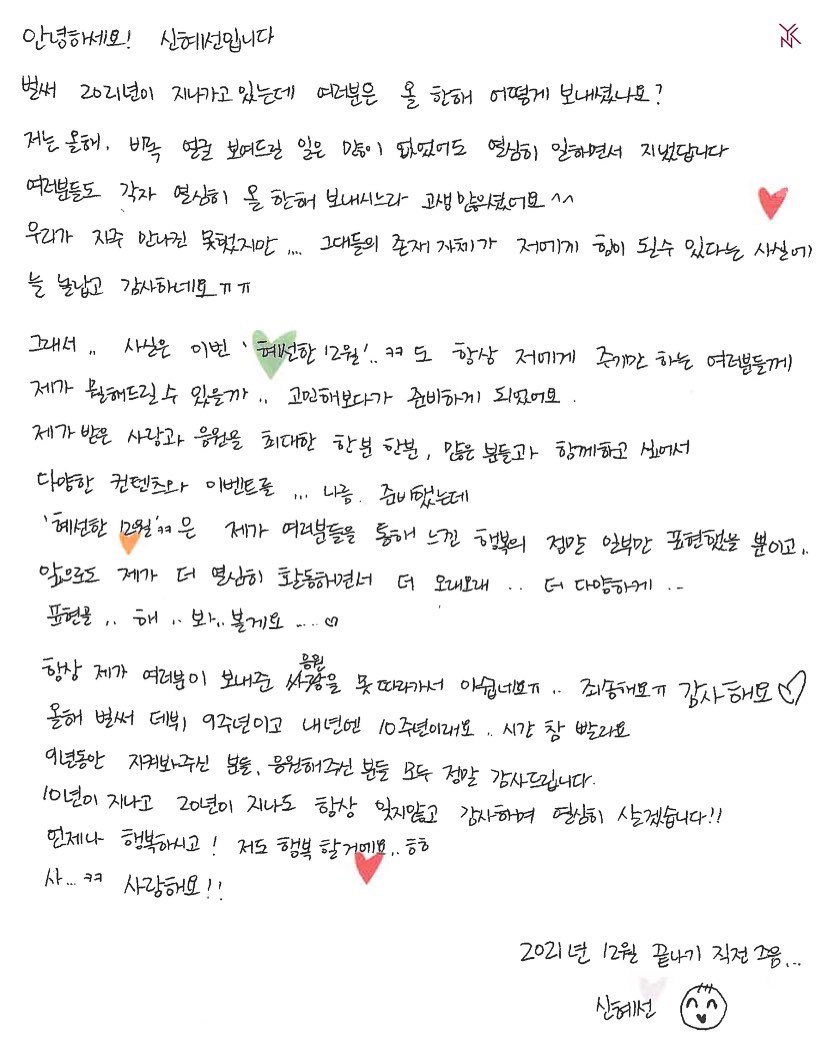 YNK
안녕하세요! 신혜선입니다
벌써 2021년이 지나가고 있는데 여러분은 올 한해 어떻게 보내셨나요?
저는 올해, 비록 얼굴 보여드린 일은 많이 없었어도 열심히 일하면서 지냈답니다
여러분들도 각자 열심히 올 한해 보내시느라 고생 많으셨어요^^
우리가 자주 만나진 못했지만... 그대들의 존재 자체가 저에게 힘이 될수 있다는 사실에
늘 놀랍고 감사하네요ㅠㅠ
그래서.. 사실은 이번 '혜선한 12월'..ㅋㅋ도 항상 저에게 주기만 하는 여러분들께
제가 뭘해드릴 수 있을까.. 고민해보다가 준비하게 되었어요.
제가 받은 사랑과 응원을 최대한 한분 한분, 많은 분들과 함께하고 싶어서
다양한 컨텐츠와 이벤트를 ... 나름. 준비했는데
'혜선한 12월'ㅋㅋ은 제가 여러분들을 통해 느낀 행복의 정말 일부만 표현했을 뿐이고,.
앞으로도 제가 더 열심히 활동하면서 더 오래오래 .. 더 다양하게 ..
표현을 .. 해 .. 봐.. 볼게요 ....♡
항상 제가 여러분이 보내준 응원을 못 따라가서 아쉽네요ㅠ.. 죄송해요ㅠ 감사해요♡
올해 벌써 데뷔 9주년이고 내년엔 10주년이래요.. 시간 참 빨라요
9년동안 지켜봐주신 분들, 응원해주신 분들 모두 정말 감사드립니다.
10년이 지나고 20년이 지나도 항상 잊지않고 감사하며 열심히 살겠습니다!!
언제나 행복하시고! 저도 행복 할거에요..ㅎㅎ
사...ㅋㅋ 사랑해요!!
2021년 12월 끝나기 직전 즈음...
신혜선